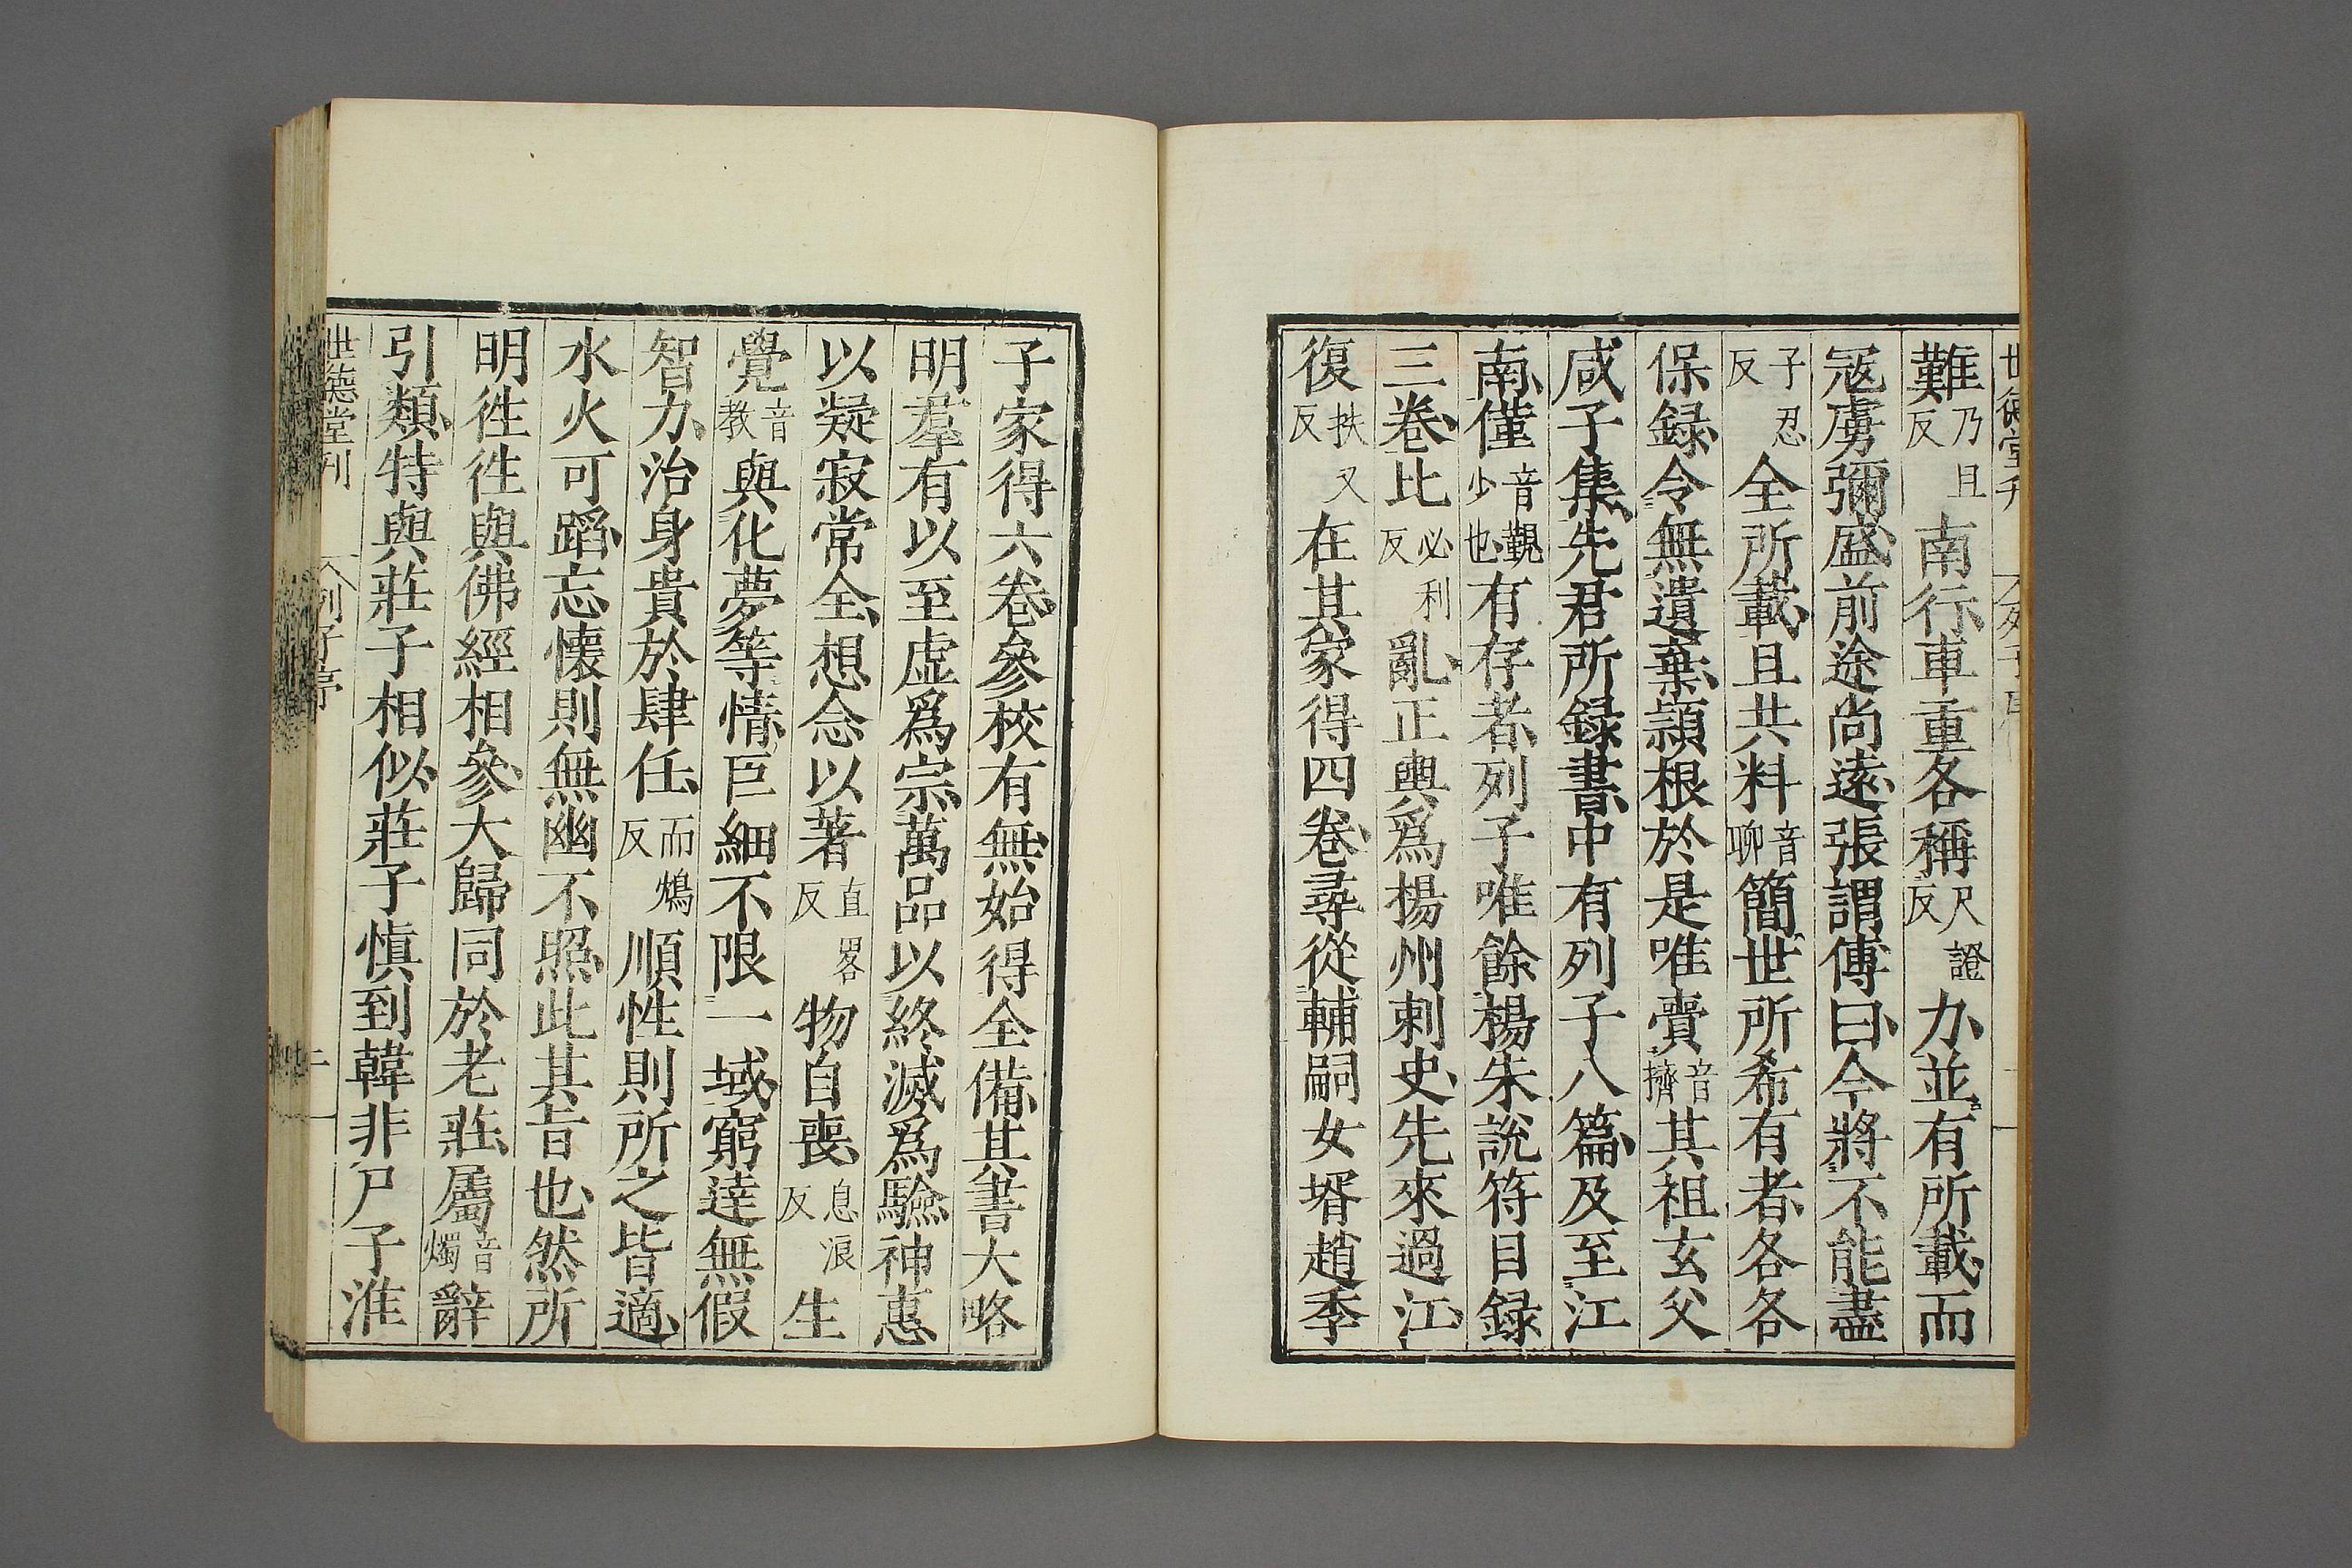 難乃且反南行車重各稱尺證反力並有所載而
寇虜彌盛前途尚遠張謂傅曰今將不能盡
子忍反全所載且共料音聊簡世所希有者各各
保録令無遺棄頴根於是唯賫音擠其祖玄父
咸子集先君所録書中有列子八篇及至江
南僅音覲少也有存者列子唯餘楊朱說符目録
三卷比必利反亂正輿爲揚州刺史先來過江
復扶又反在其家得四卷尋從輔嗣女壻趙季
子家得六卷參校有無始得全備其書大略
明羣有以至虛爲宗萬品以終滅爲驗神惠
以凝寂常全想念以著直畧反物自喪息浪反生
覺音教與化夢等情巨細不限一域窮達無假
智力治身貴於肆任而鴆反順性則所之皆適
水火可蹈忘懷則無幽不照此其旨也然所
明徃徃與佛經相參大歸同於老莊屬音燭辭
引類特與莊子相似莊子慎到韓非尸子淮
世德堂刊 列子序 二